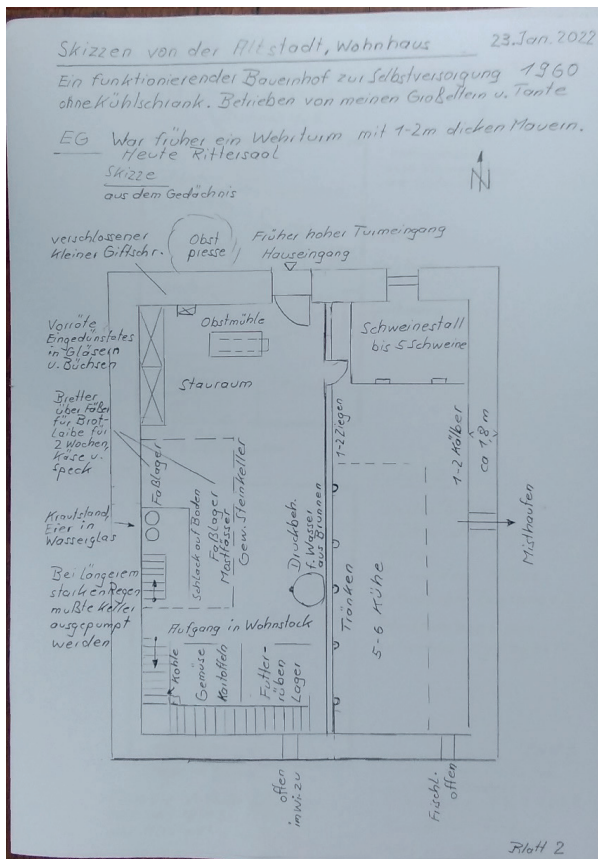 Skizzen von der Altstadt, Wohnhaus 23. Jan. 2022
Ein funktionierender Bauernhof zur Selbstversorgung 1960
ohne Kühlschrank. Betrieben von meinen Großeltern u. Tante
EG War früher ein Wehrturm mit 1-2m dicken Mauern.
Heute Rittersaal
Skizze
aus dem Gedächnis
N
verschlossener
kleiner Giftschr.
Obst
presse
Früher hoher Turmeingang
Hauseingang
Vorräte
Eingedünstetes
in Gläsern
u. Büchsen
Obstmühle
Stauraum
Schweinestall
bis 5 Schweine
Bretter
über Fäßer
für Brot-
laibe für
2 Wochen,
Käse u.
Speck
Faßlager
1-2 Ziegen
1-2 Kälber
ca 1,8 m
Krautstand,
Eier in
Wasserglas
Schlack auf Boden
Faßlager
Mostfässer
Gew. Steinkeller
Druckbeh.
f. Wasser
aus Brunnen
Tränken
5-6 Kühe
Misthaufen
Bei längerem
starken Regen
mußte Keller
ausgepumpt
werden
Aufgang in Wohnstock
Kohle
Gemüse
Kartoffeln
Futter-
rüben
Lager
offen
im Wi. zu
Fischl.
offen
Blatt 2